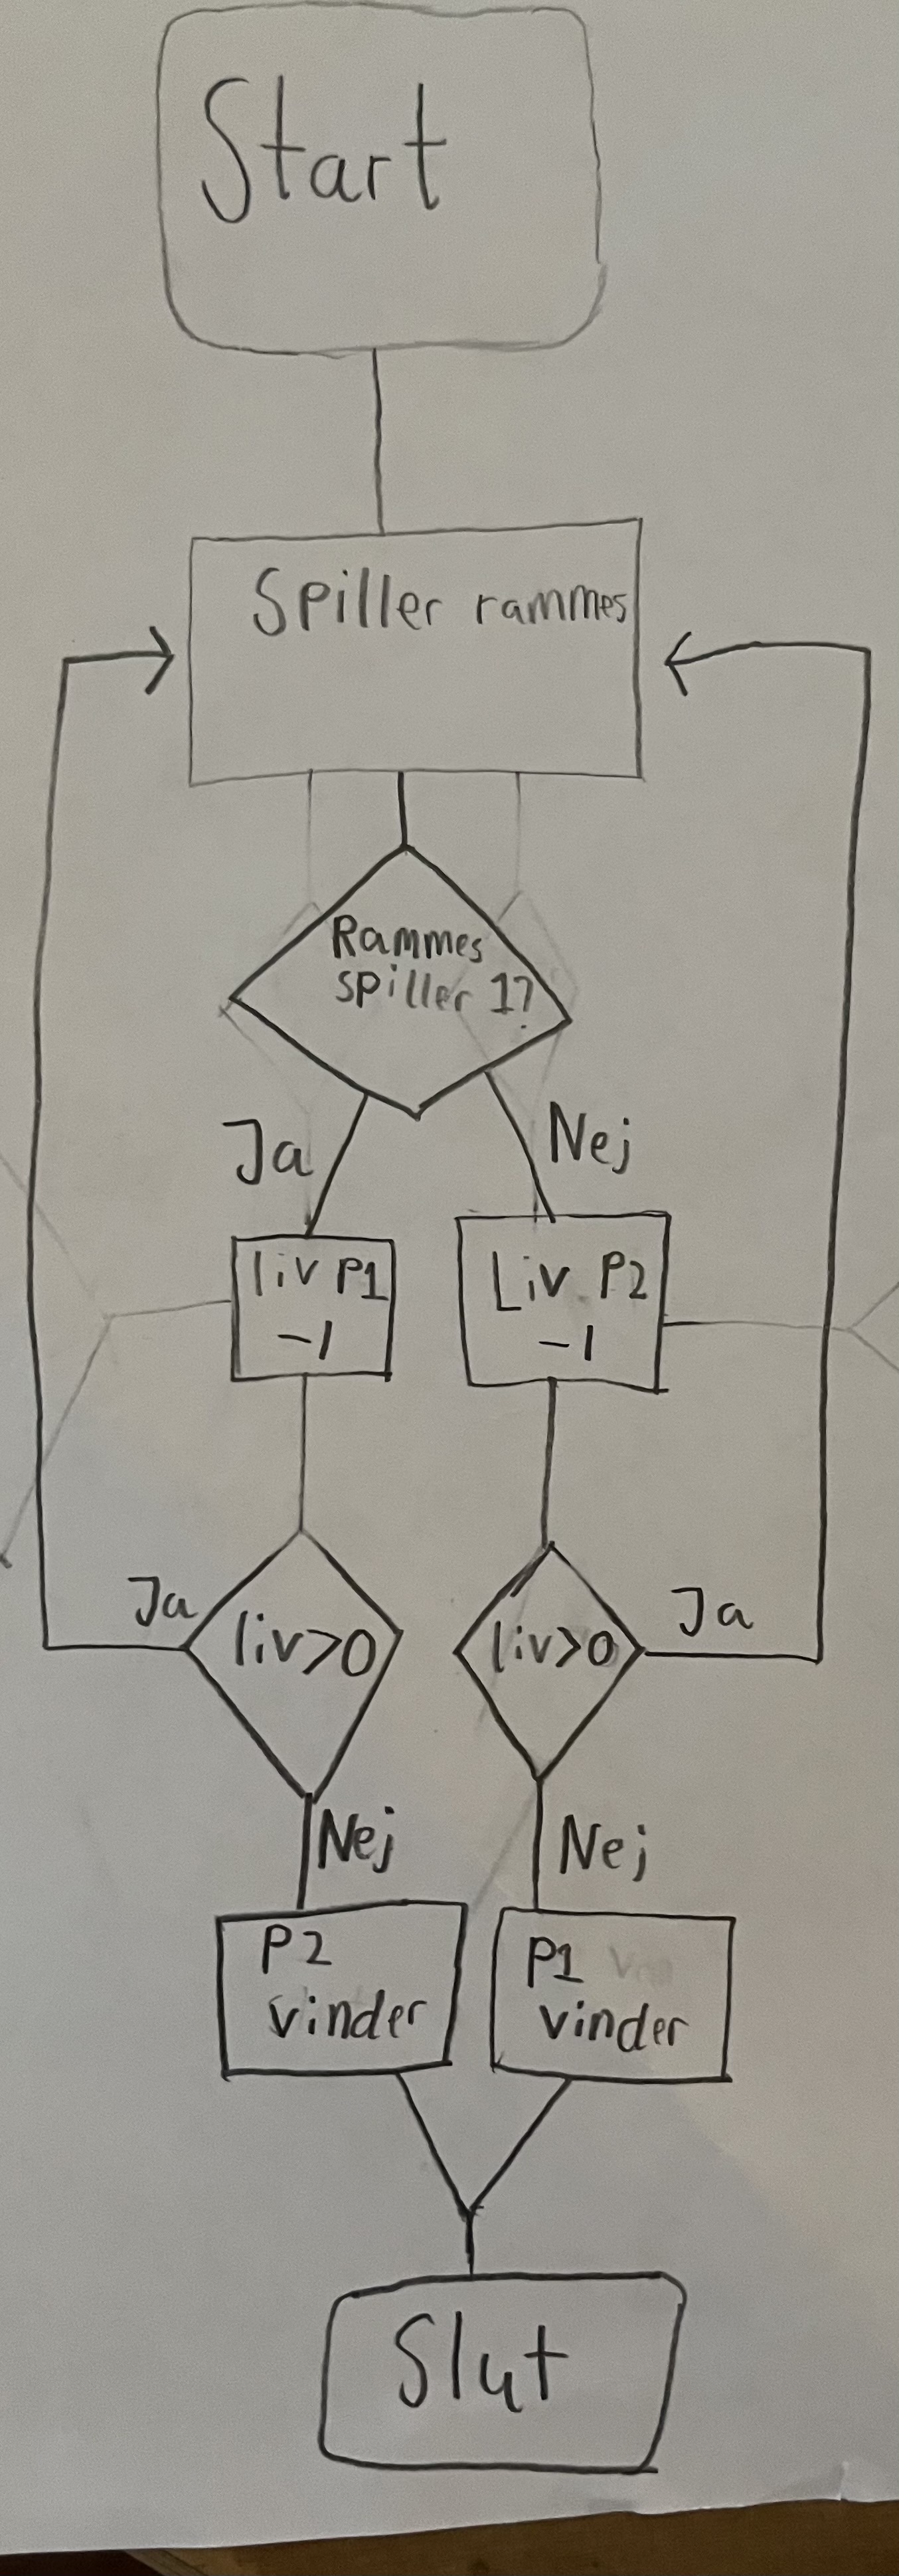 Start
Spiller rammes
Rammes
spiller 1?
Ja
Nej
liv P1
-1
Liv P2
-1
Ja
liv>0
liv>0
Ja
Nej
Nej
P2
vinder
P1
vinder
Slut